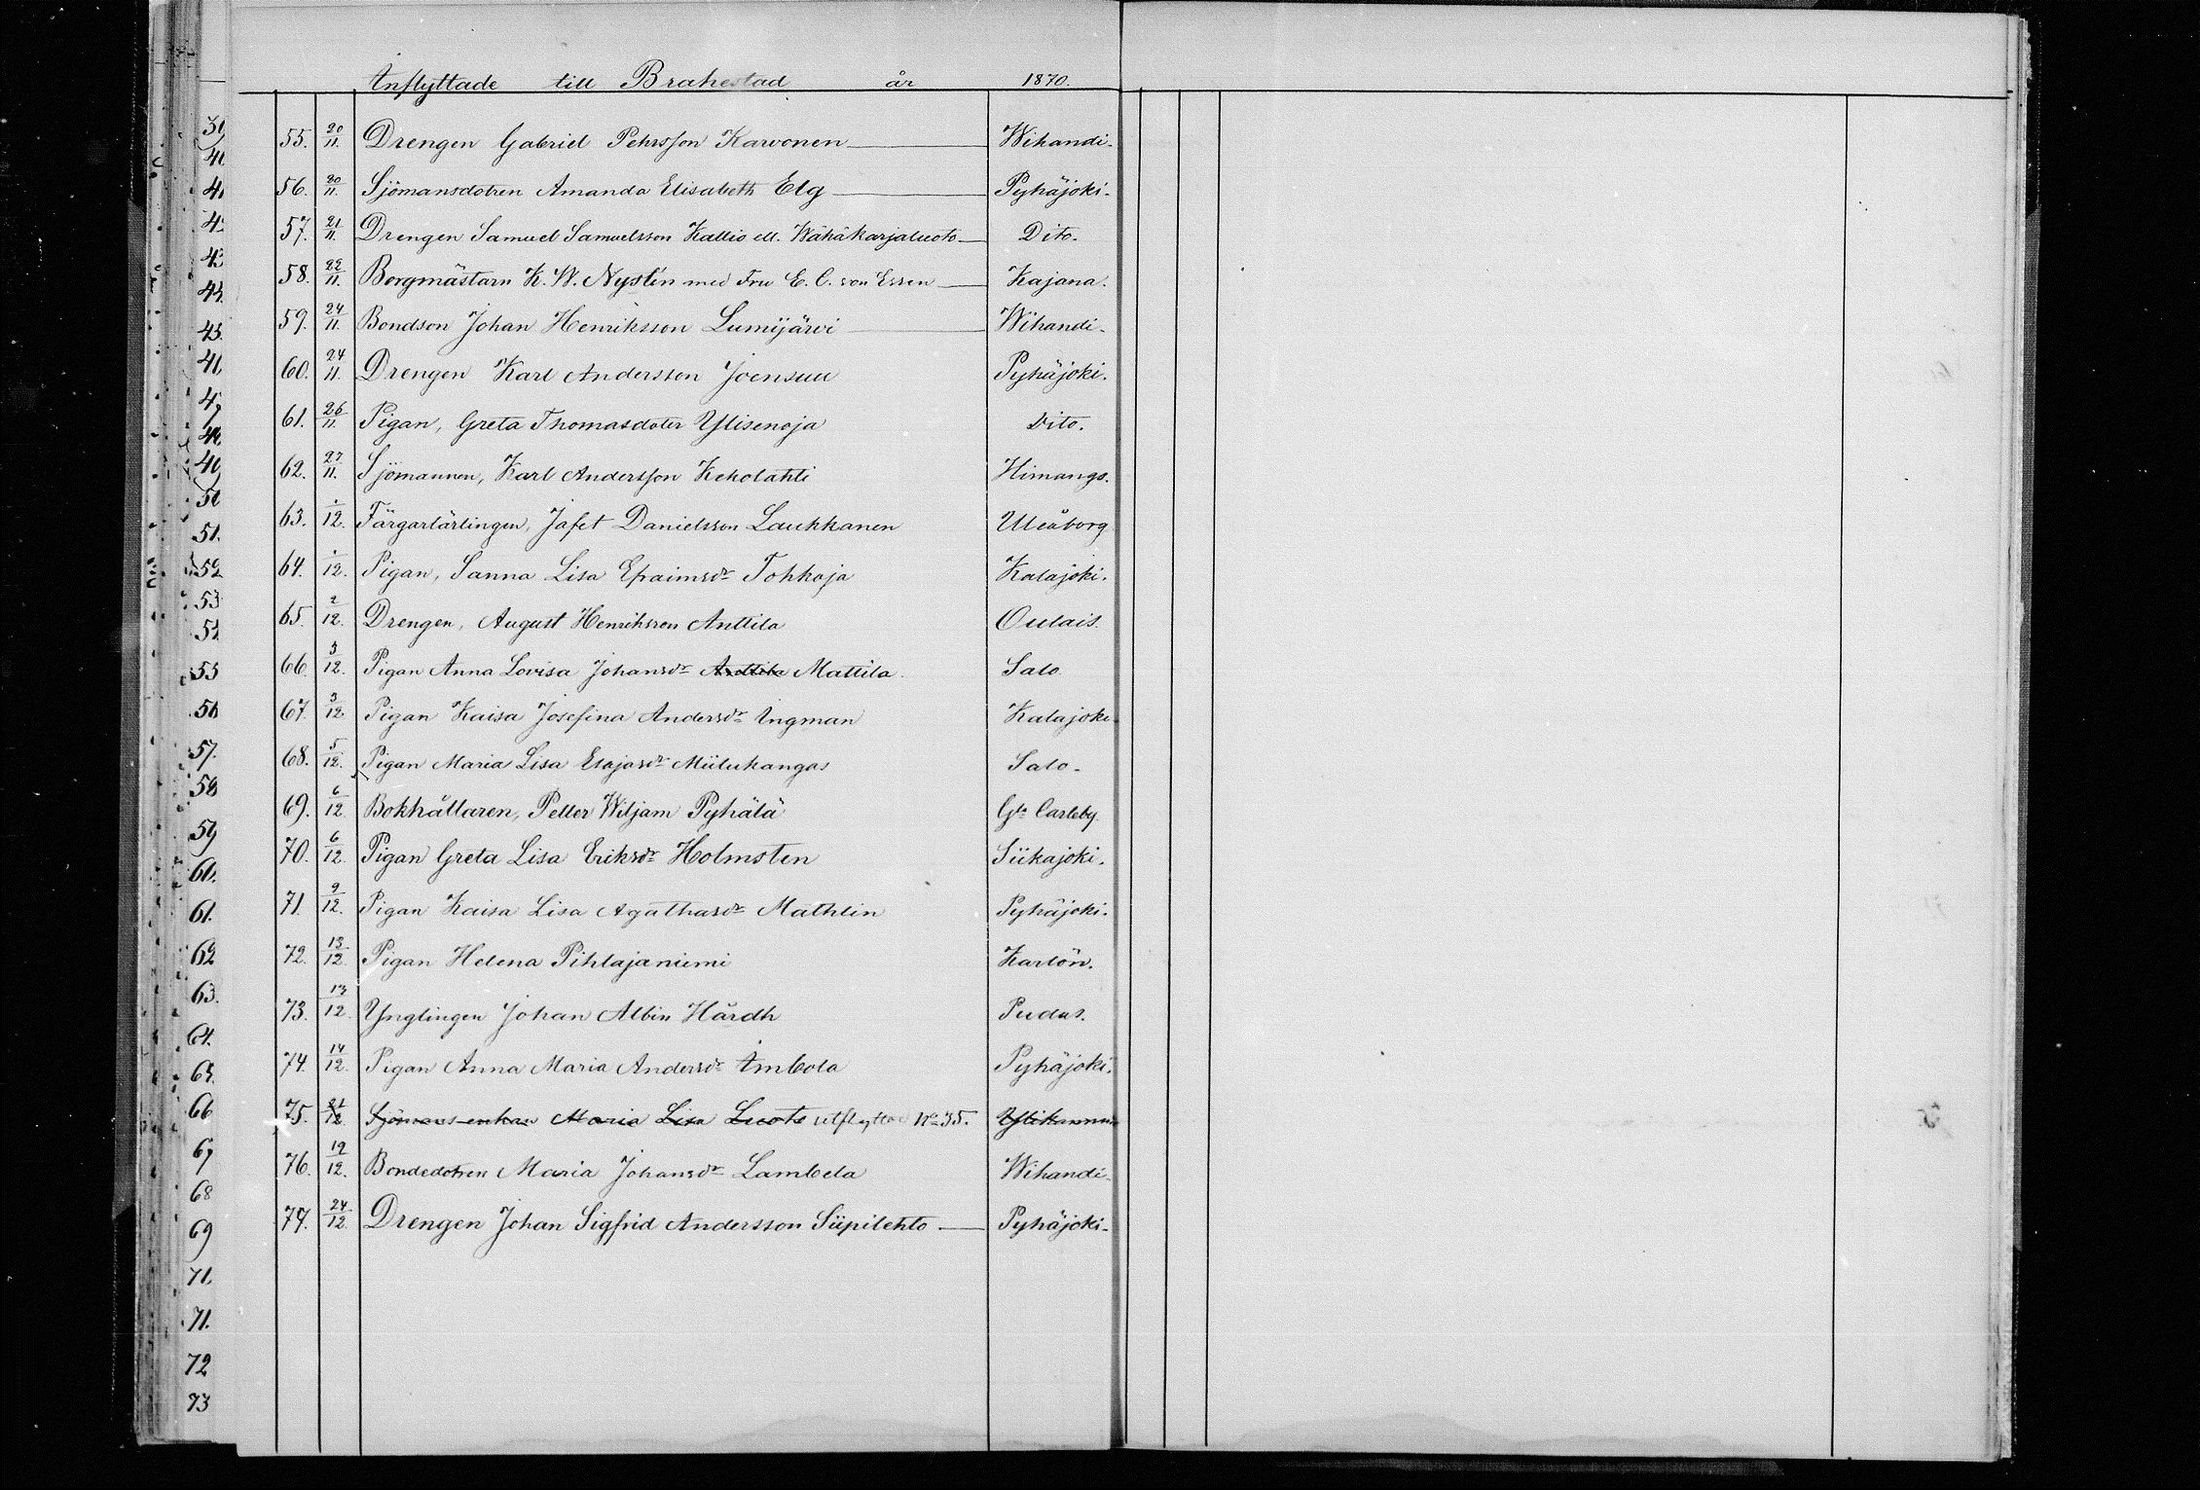 Inflyttade till Brahestad år 1870.
55. 20/11. Drengen Gabriel Pehrsson Karvonen Wihandi.
56. 20/11. Sjömansdotren Amanda Elisabeth Elg Pyhäjoki.
57. 21/11. Drengen Samuel Samuelsson Kallio ell. Wähäkarjaluoto Dito.
58. 22/11. Borgmästarn K. W. Nystén med Fru E. C. von Essen Kajana.
59. 24/11. Bondson Johan Henriksson Lumijärvi Wihandi.
60. 24/11. Drengen Karl Andersson Joensuu Pyhäjoki.
61. 26/11. Pigan, Greta Thomasdoter Ylisenoja Dito.
62. 27/11. Sjömannen, Karl Andersson Kekolahti Himango.
63. 1/12. Färgarlärlingen, Jafet Danielsson Laukkanen Uleåborg
64. 1/12. Pigan, Sanna Lisa Efraimsdr Tohkoja Kalajoki.
65. 2/12. Drengen, August Henriksson Anttila Oulais.
66. 3/12. Pigan Anna Lovisa Johansdr Anttila Mattila. Salo
67. 3/12 Pigan Kaisa Josefina Andersdr Ingman Kalajoki
68. 5/12. Pigan Maria Lisa Esajasdr Miilukangas Salo.
69. 6/12 Bokhållaren, Petter Wiljam Pyhälä Gla Carleby.
70. 6/12 Pigan Greta Lisa Eriksdr Holmsten Siikajoki.
71. 9/12. Pigan Kaisa Lisa Agathasdr Mathlin Pyhäjoki.
72. 13/12 Pigan Helena Pihlajaniemi Karlön.
73. 13/12 Ynglingen Johan Albin Hårdh Pudas.
74. 14/12. Pigan Anna Maria Andersdr Imbola Pyhäjoki.
75. 21/12 Sjömans enkan Maria Lisa Luoto utflyttad No 35. Ylikannus
76. 19/12. Bondedotren Maria Johansdr Lambela Wihandi.
77. 24/12 Drengen Johan Sigfrid Andersson Siipilehto Pyhäjoki.
51.
52
53
55
57.
58
59
60.
61.
62
63.
64.
65.
66
67
68
69
71.
71.
72
73